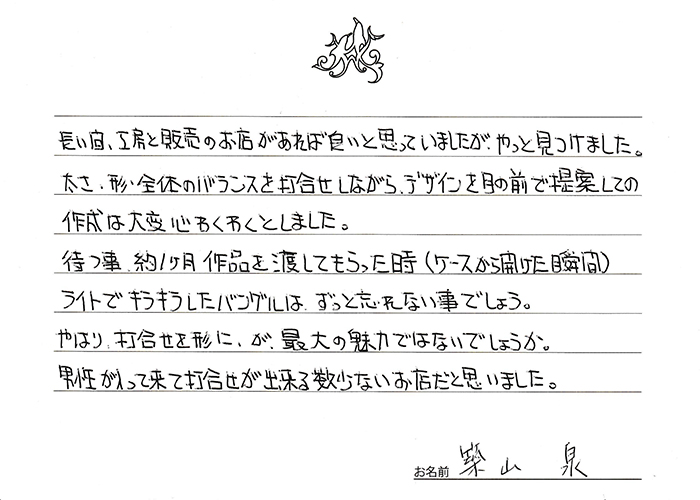 長い間、工房と販売のお店があれば良いと思っていましたが、やっと見つけました。
太さ・形・全体のバランスを打合せしながら、デザインを目の前で提案しての
作成は大変心わくわくとしました。
待つ事、約1ヶ月 作品を渡してもらった時(ケースから開けた瞬間)
ライトでキラキラしたバングルは、ずっと忘れない事でしょう。
やはり、打合せを形に、が、最大の魅力ではないでしょうか。
男性が入って来て打合せが出来る数少ないお店だと思いました。
お名前 築山 泉